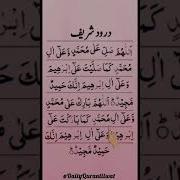 درود شریف
اَللّٰهُمَّ صَلِّ عَلٰى مُحَمَّدٍ وَّعَلٰٓى اٰلِ
مُحَمَّدٍ كَمَا صَلَّيْتَ عَلٰٓى اِبْرٰهِيْمَ
وَعَلٰٓى اٰلِ اِبْرٰهِيْمَ اِنَّكَ حَمِيْدٌ
مَّجِيْدٌ اَللّٰهُمَّ بَارِكْ عَلٰى مُحَمَّدٍ
وَّعَلٰٓى اٰلِ مُحَمَّدٍ كَمَا بَارَكْتَ عَلٰٓى
اِبْرٰهِيْمَ وَعَلٰٓى اٰلِ اِبْرٰهِيْمَ اِنَّكَ
حَمِيْدٌ مَّجِيْدٌ
#DailyQuranTilawat